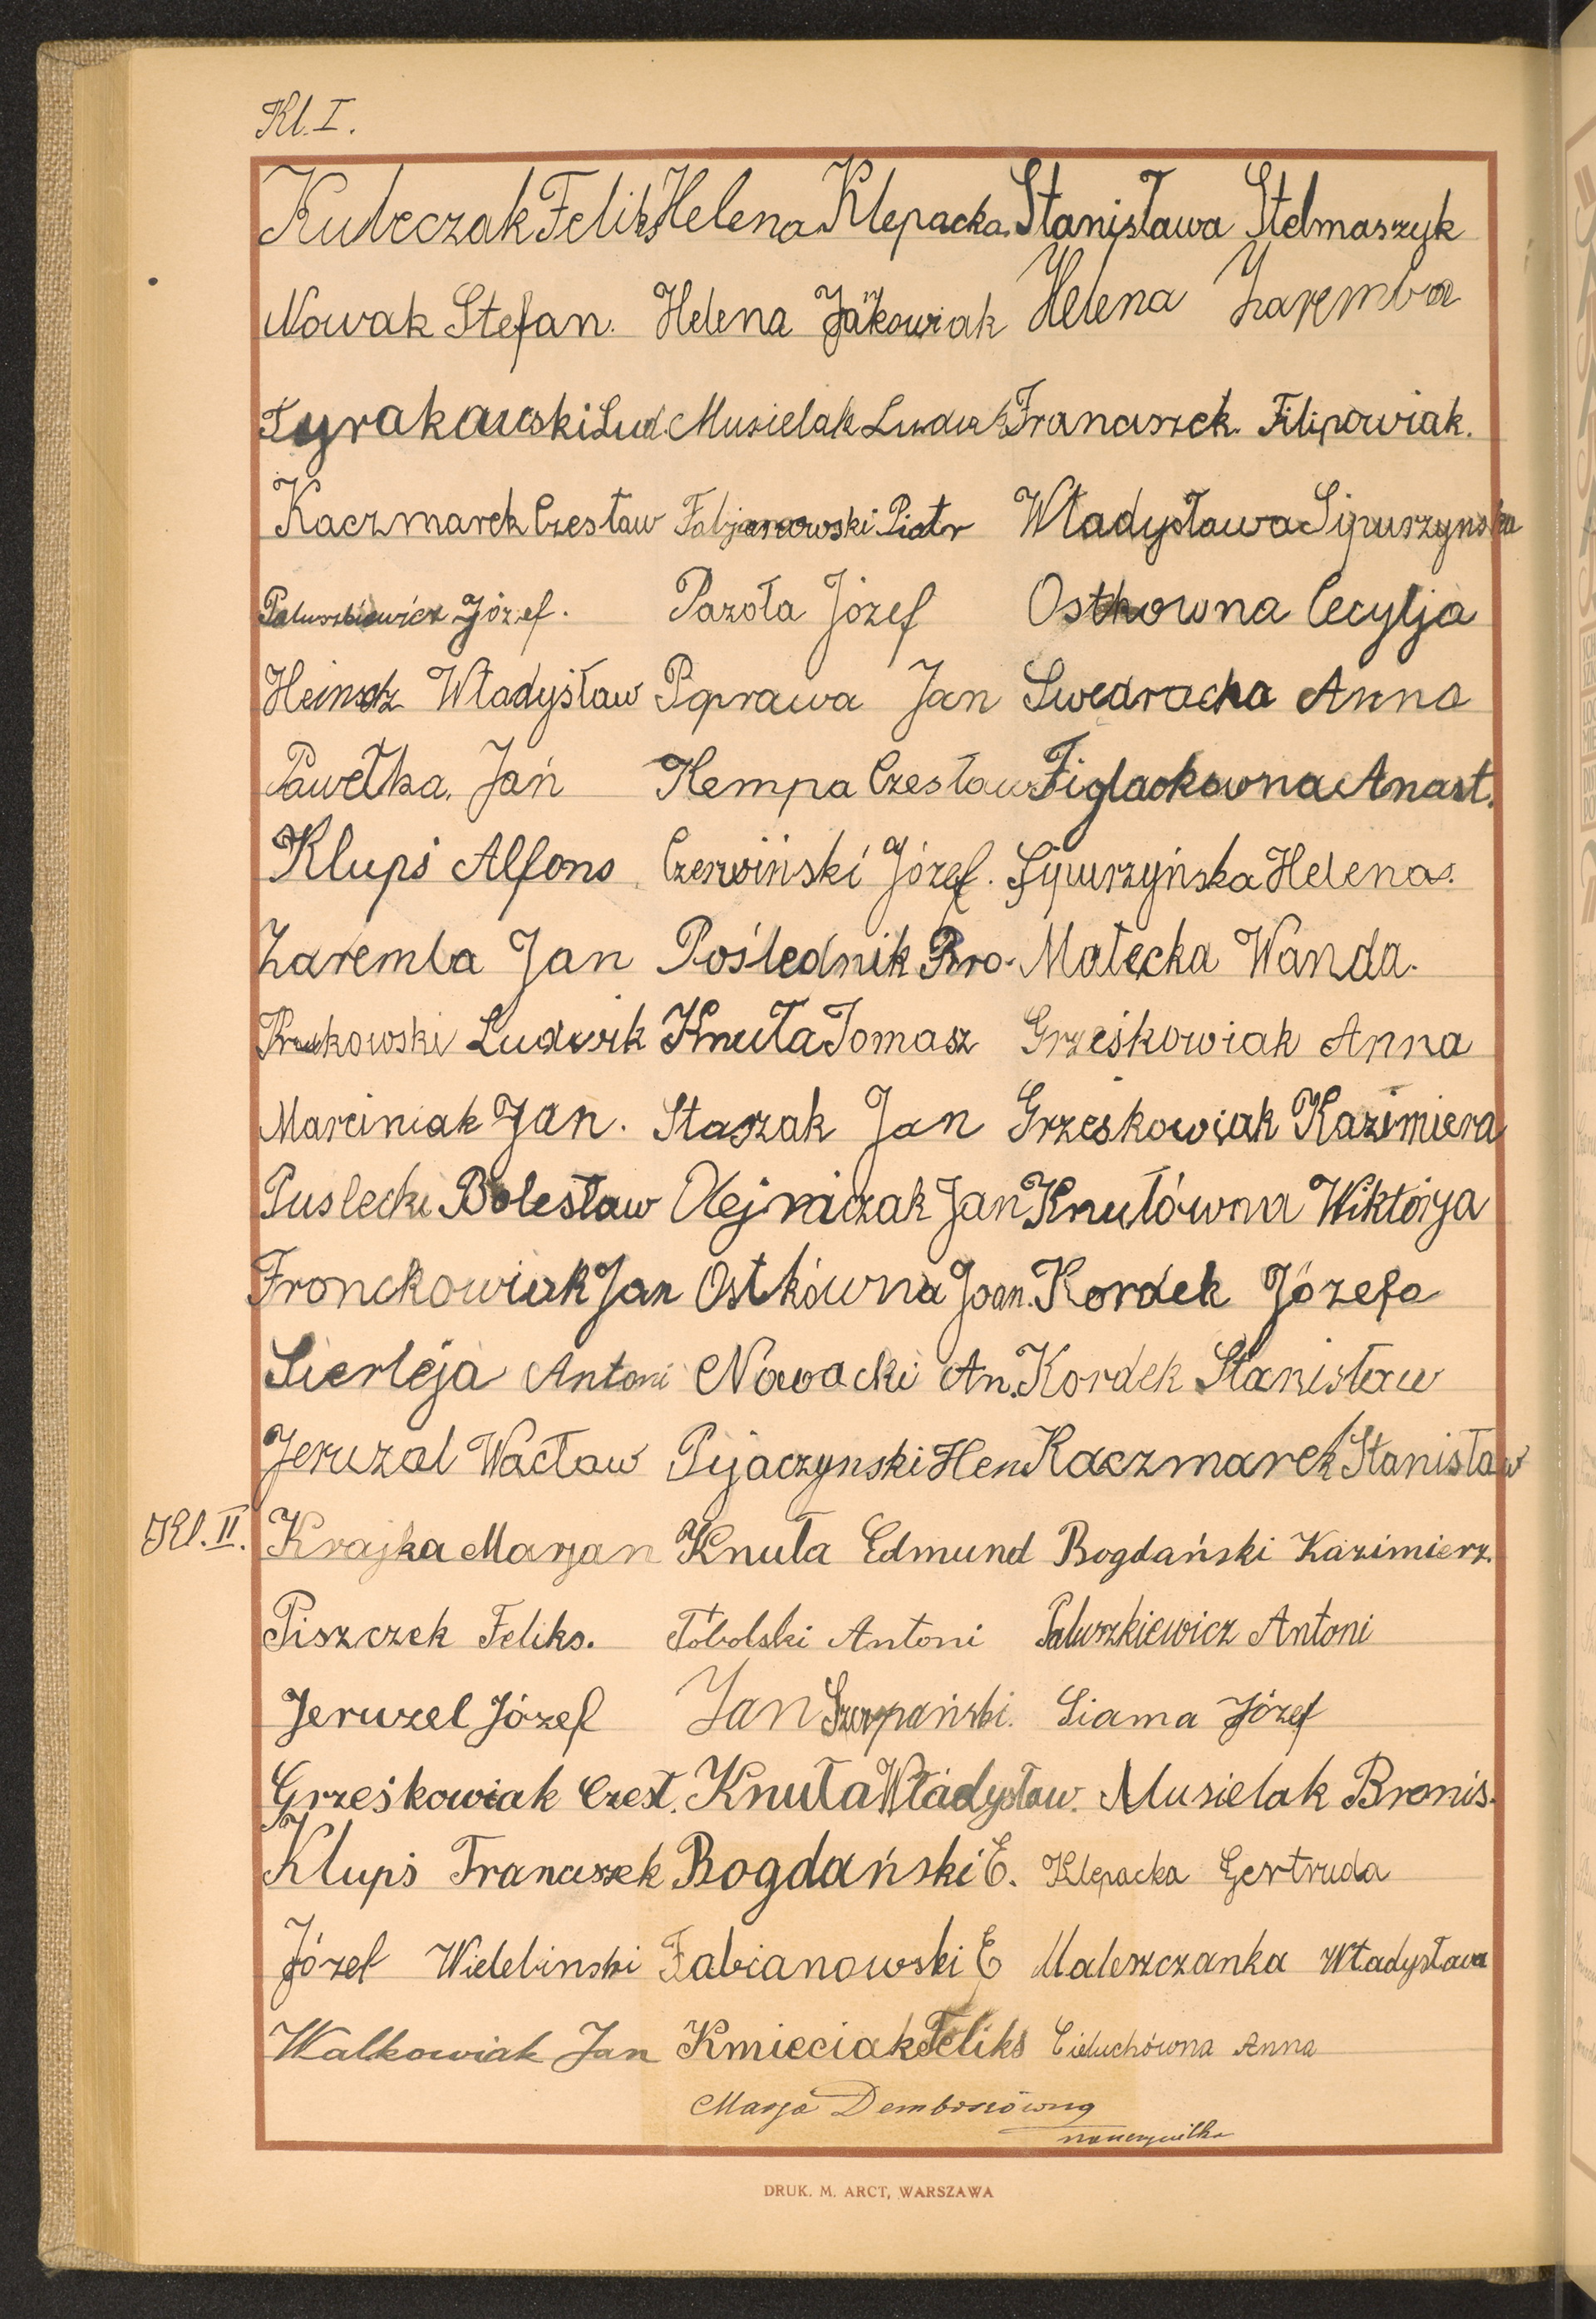 Kl. I.
Kuleczak Feliks Helena Klepacka. Stanisława Stelmaszyk
Nowak Stefan. Helena Jäkowiak Helena Zaremba
Tyrakawski Lud. Musielak Ludwik Franciszek Filipowiak.
Kaczmarek Czesław Fabjanowski Piotr Władysława Sipurzynska
Paluszkiewicz Józef. Pazoła Józef Ostkowna Cecylja
Władysław Poprawa Jan Swedracka Anna
Pawełka, Jań Kempa Czesław Figlaokowna Anast.
Klupś Alfons Czerwiński Józef. Sipurzyńska Helena.
Zaremba Jan Poślednik Bro. Małecka Wanda.
Ludwik Knuła Tomasz Grześkowiak Anna
Marciniak Jan. Staszak Jan Grześkowiak Kazimiera
Puslecki Bolesław Olejniczak Jan Knułówna Wiktorja
Fronckowiak Jan Ostkówna Joan. Kordek Józefa
Sierleja Antoni Nowacki An. Kordek Stanisław
Jeruzal Wacław Pijaczynski Hen Kaczmarek Stanisław
Kl. II. Krajka Marjan Knuła Edmund Bogdański Kazimierz.
Piszczek Feliks. Tobolski Antoni Paluszkiewicz Antoni
Jeruzel Józef Jan Szczepański. Siama Józef
Grześkowiak Czesł. Knuła Władysław. Musielak Bronis.
Klupś Franciszek Bogdański E. Klepacka Gertruda
Józef Wielebinski Fabianowski E Maleszczanka Władysława
Walkowiak Jan Kmieciak Feliks Cieluchówna Anna
Marja
nauczycielka
DRUK. M. ARCT, WARSZAWA